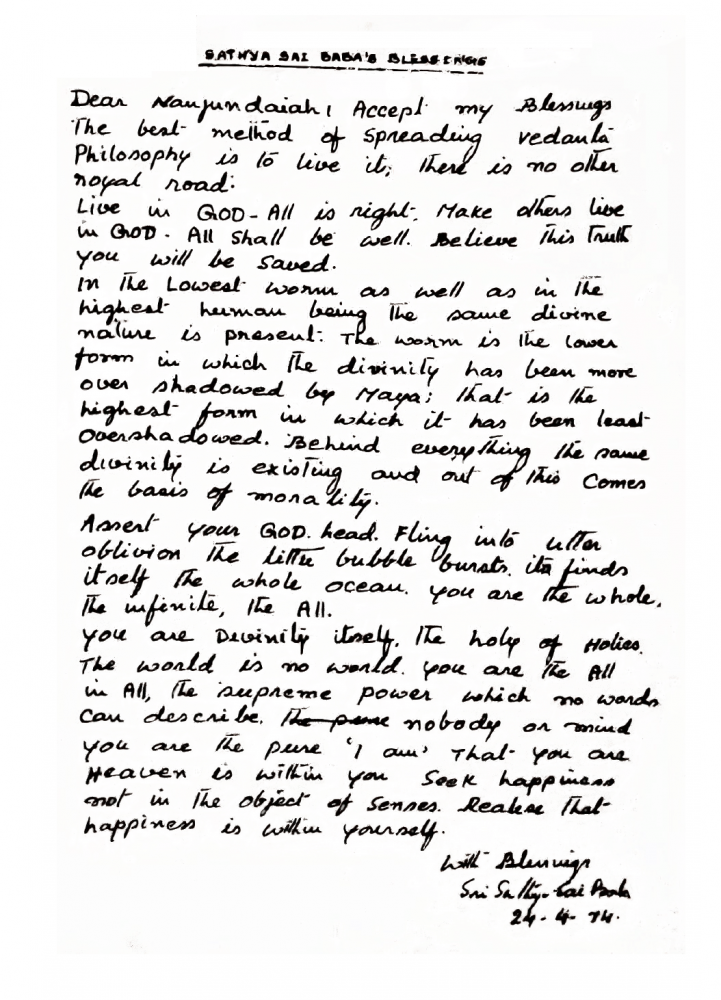 SATHYA SAI BABA'S BLESSINGS
Dear Nanjundaiah! Accept my Blessings
The best method of spreading vedanta
Philosophy is to live it; there is no other
royal road.
Live in GOD - All is right. Make others live
in GOD. All shall be well. Believe this Truth
you will be saved.
In the Lowest worm as well as in the
highest human being the same divine
nature is present. The worm is the lower
form in which the divinity has been more
over shadowed by Maya; that is the
highest form in which it has been least
overshadowed. Behind everything the same
divinity is existing and out of this comes
the basis of morality.
Assert your GOD. head. Fling into utter
oblivion the little bubble bursts. its finds
itself the whole ocean. you are the whole,
the infinite, the All.
you are Divinity itself. The holy of Holies.
The world is no world. you are the All
in All, the supreme power which no words
can describe. nobody or mind
you are the pure 'I am' That you are
Heaven is within you Seek happiness
not in the object of senses. Realise that
happiness is within yourself.
With Blessings
Sri Sathya Sai Baba
24-4-74.